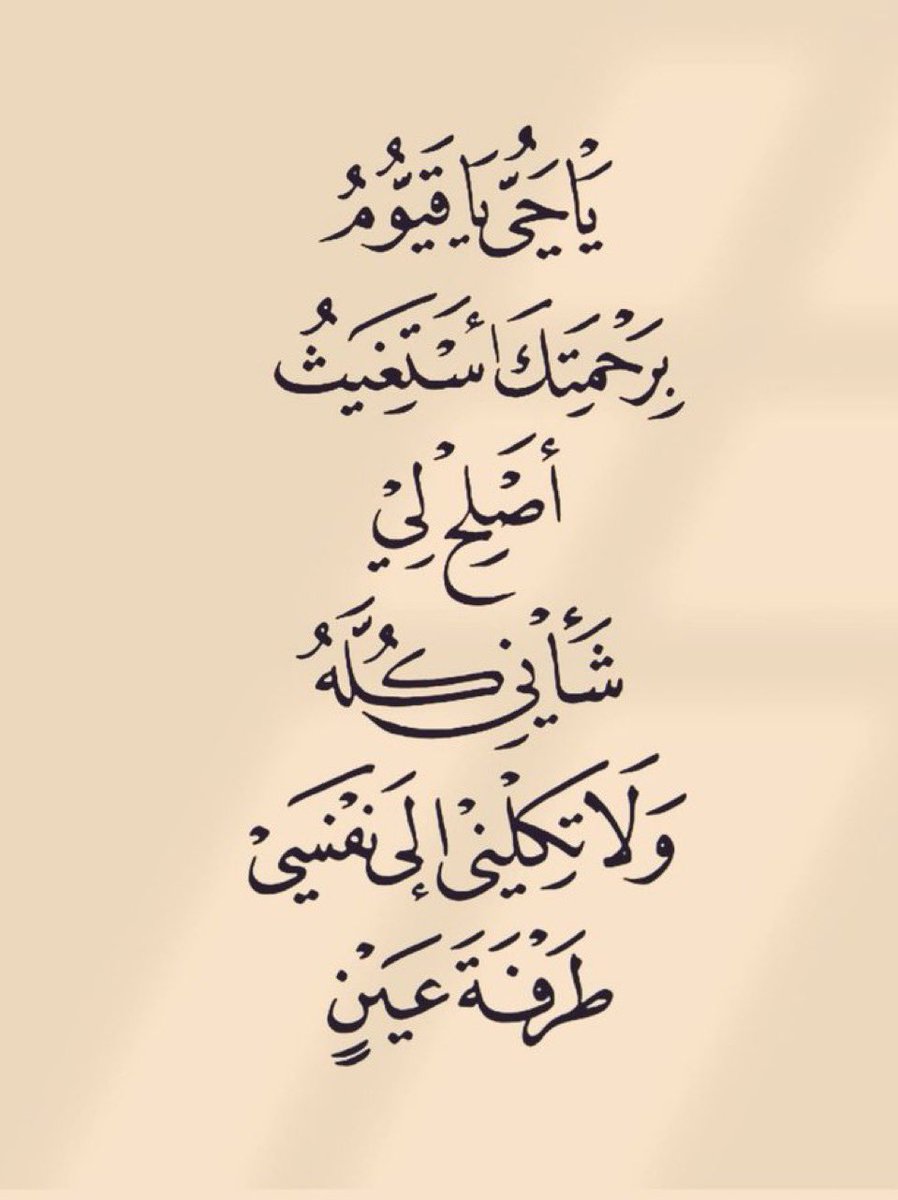 يَا حَيُّ يَا قَيُّومُ
بِرَحْمَتِكَ أَسْتَغِيثُ
أَصْلِحْ لِيْ
شَأْنِي كُلَّهُ
وَلَا تَكِلْنِيْ إِلَى نَفْسِيْ
طَرْفَةَ عَيْنٍ